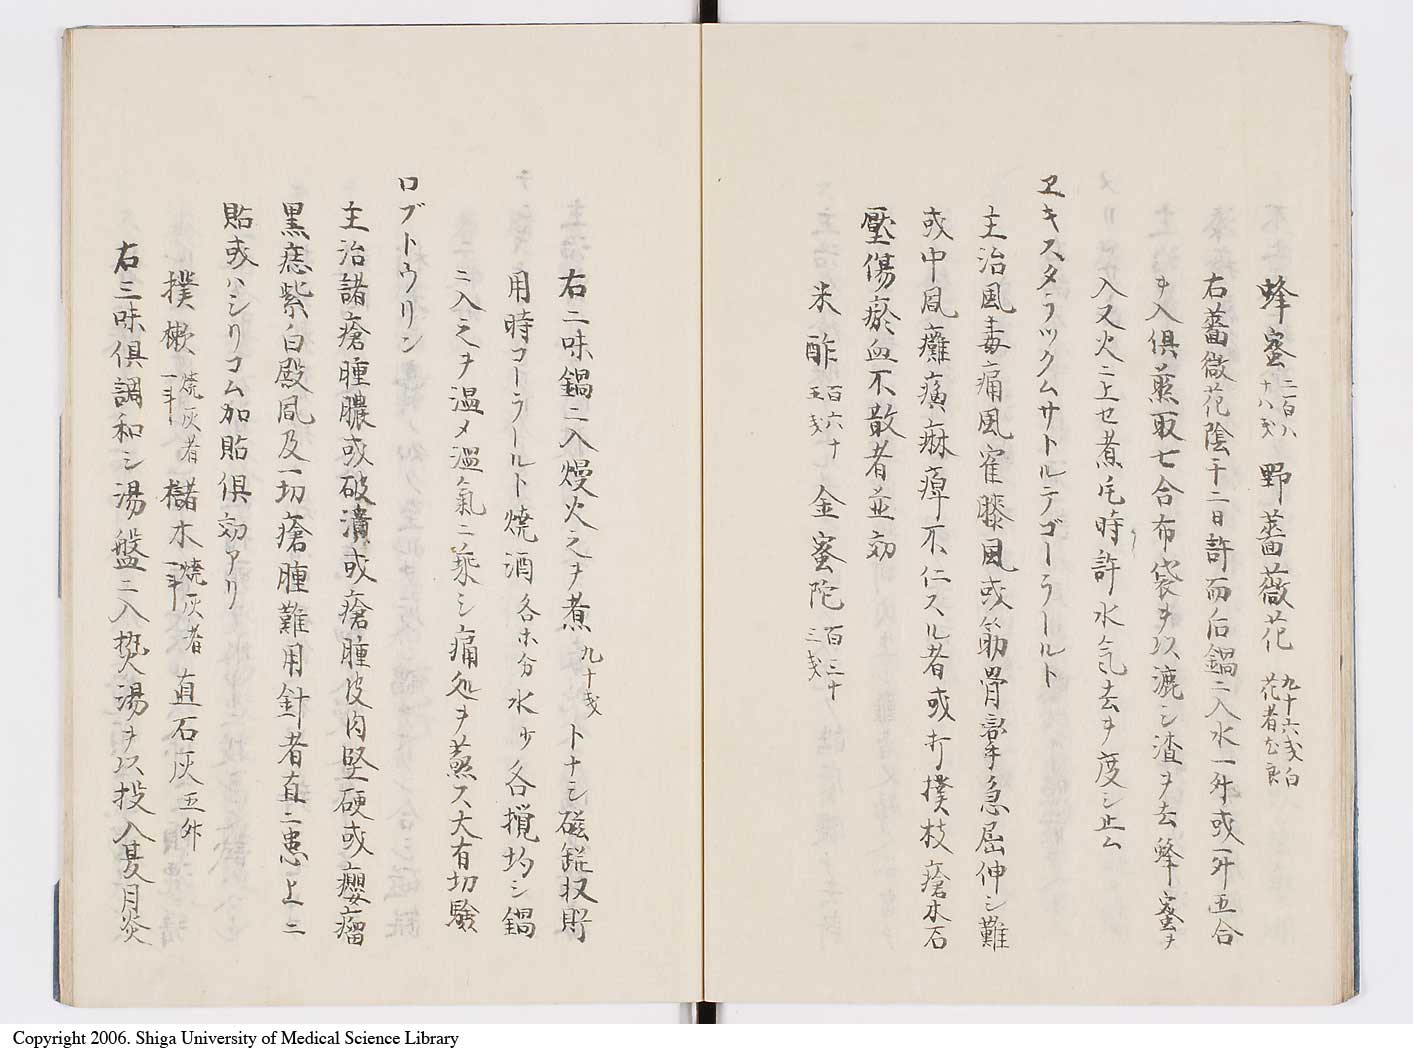 蜂蜜 二百八十八戔 野薔薇花 九十六戔白花者為良
右薔薇花陰干二日許而后鍋ニ入水一舛或一舛五合
ヲ入倶蒸取七合布袋ヲ以漉シ渣ヲ去蜂蜜ヲ
入又火ニ上セ煮
時許水気去ヲ度シ止ム
ヱキスタラツクムサトルテゴーラールト
主治風毒痛風雀膝風或筋骨攣急屈伸シ難
或中風癱瘓麻痺不仁スル者或打撲枝瘡木石
壓傷瘀血不散者並効
米酢 百六十五戔 金蜜陀 百三十三戔
右二味鍋ニ入熳火之ヲ煮 九十戔 トナシ磁
收貯
用時コーラールト焼酒各ホ分水少各攪均シ鍋
ニ入之ヲ温メ温氣ニ乘シ痛処ヲ蒸ス大有切驗
ロブトウリン
主治諸瘡腫膿或破潰或瘡腫皮肉堅硬或癭瘤
黒痣紫白殿風及一切瘡腫難用針者直ニ患上ニ
貼或ハシリコム加貼倶効アリ
撲樕 焼灰者一斗 櫧木 焼灰者一斗 直石灰 五舛
右三味倶調和シ湯盤ニ入
湯ヲ以投入夏月炎
Copyright 2006. Shiga University of Medical Science Library